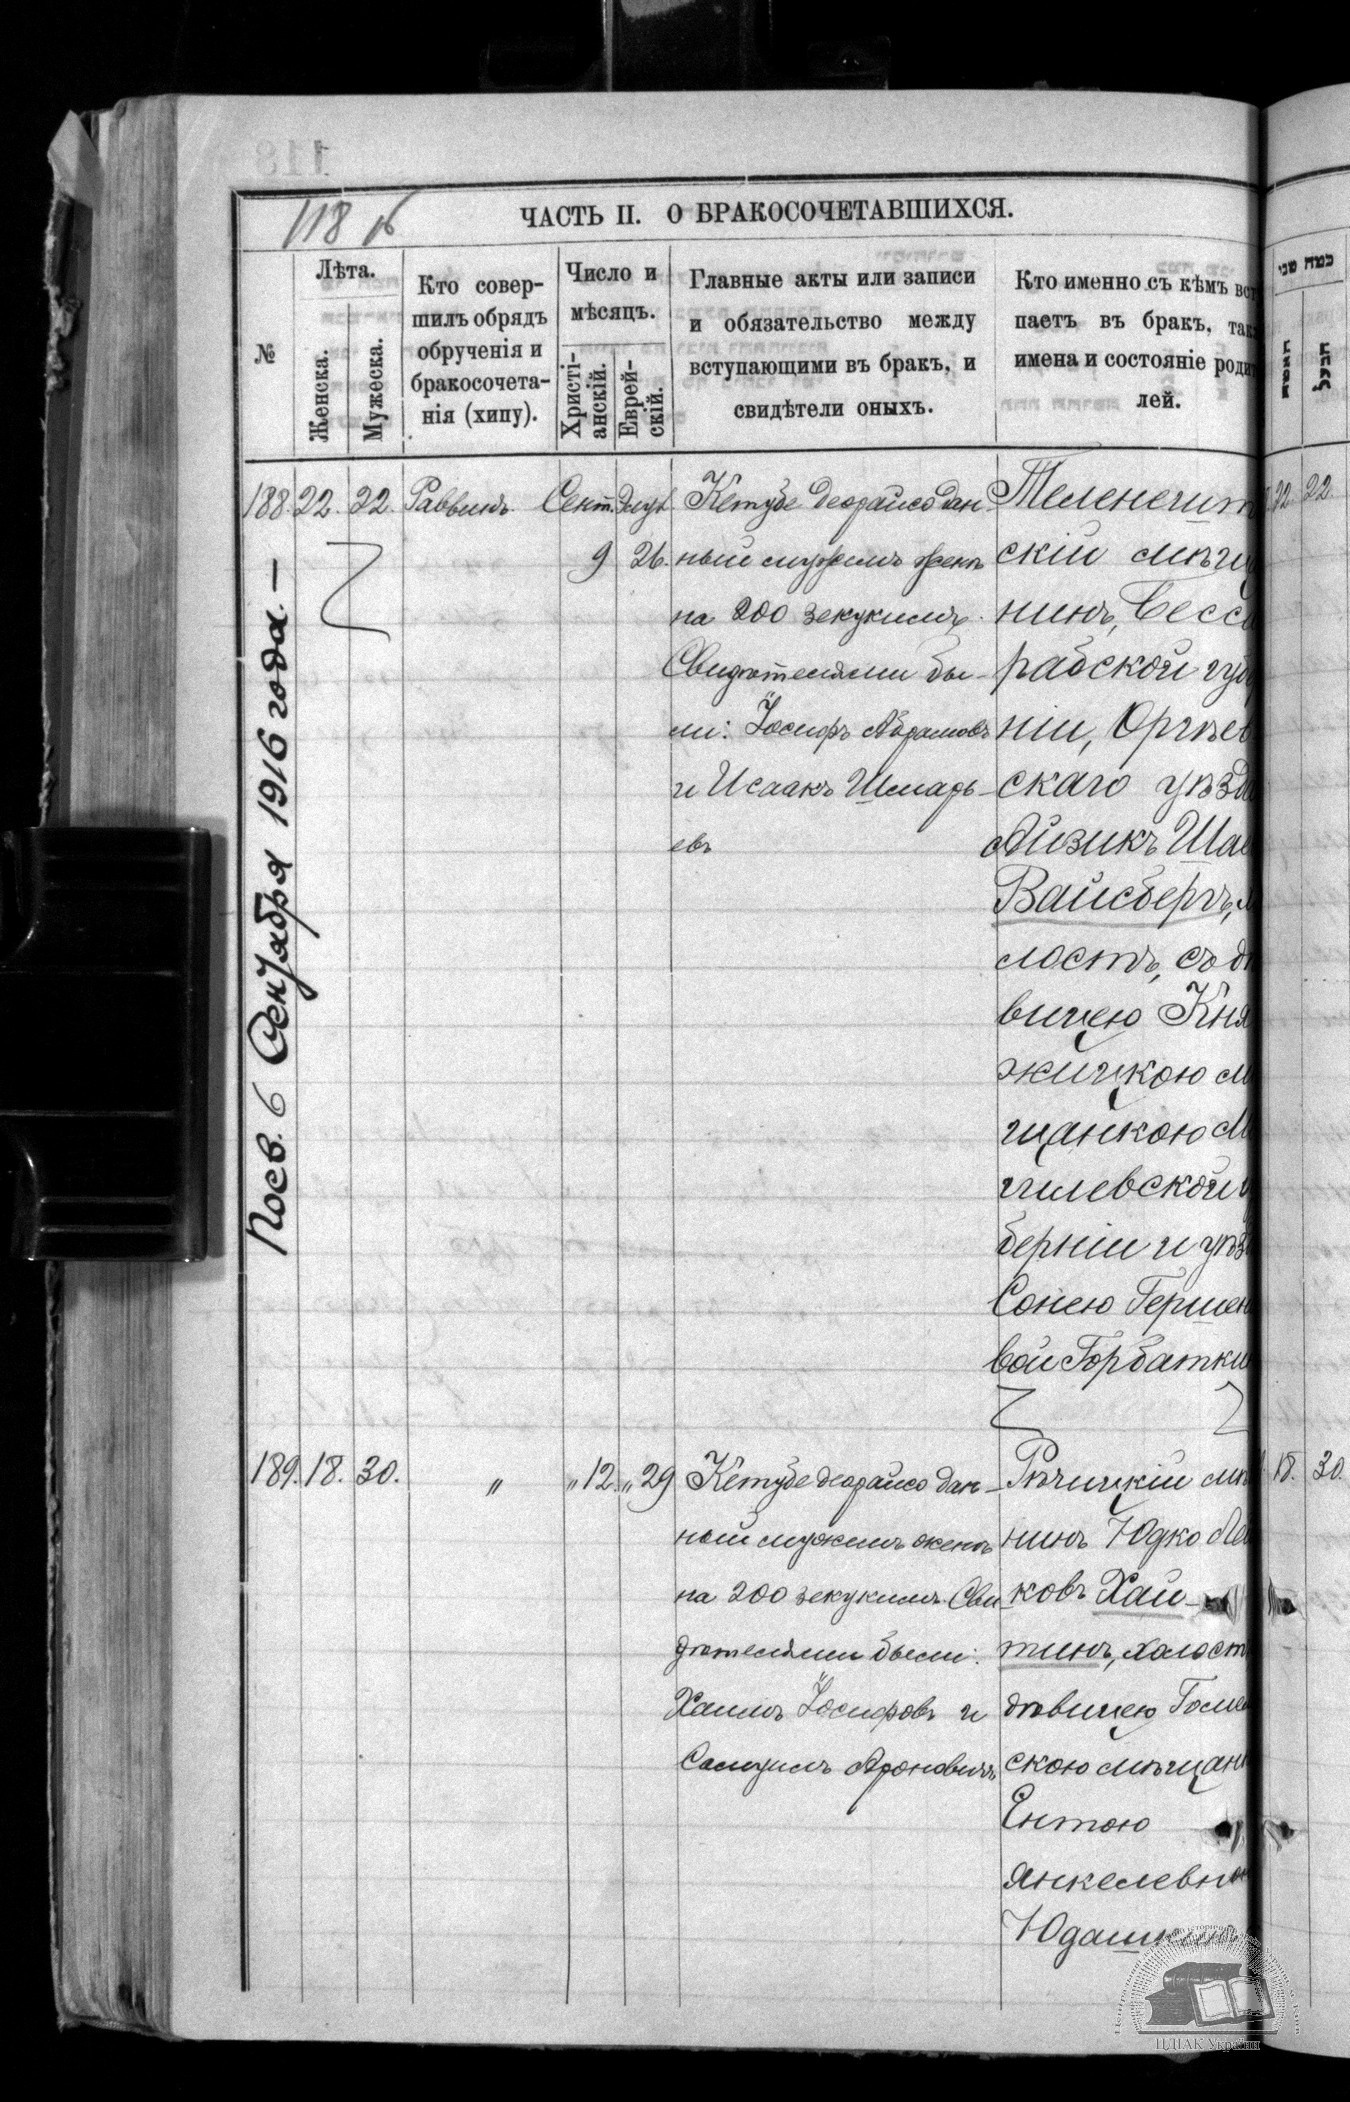 118 об
ЧАСТЬ II. О БРАКОСОЧЕТАВШИХСЯ.
№
Лѣта.
Женска.
Мужеска.
Кто совер-
шилъ обрядъ
обрученія и
бракосочета-
нія (хипу).
Число и
мѣсяцъ.
Христі-
анскій.
Еврей-
скій.
Главные акты или записи
и обязательство между
вступающими въ бракъ, и
свидѣтели оныхъ.
Кто именно съ кѣмъ вст
паетъ въ бракъ, так
имена и состояніе роди
лей.
188. 22. 22. Раввинъ. Сент. Элул
9 26.
Кетубе деорайсо дан
ный мужемъ женѣ
на 200 зекукимъ.
Свидѣтелями бы-
ли: Іосифъ Абрамовъ
и Исаакъ Шмарь-
евъ
Теленешт
скій мѣщ
нинъ, Бесса
рабской губ
ніи, Оргѣев
скаго уѣзда
Айзикъ Шае
Вайсбергъ,
лостъ, съ дѣ
вицею Кня
жицкою м
щанкою М
гилевской г
берніи и уѣз
Сонею Гершен
вой Горбаткин
Посв. 6 Сентября 1916 года.—
189. 18. 30. „ „ 12. „ 29
Кетубе деорайсо дан-
ный мужемъ женѣ
на 200 зекукимъ. Сви
дѣтелями были:
Хаимъ Іосифовъ и
Самуилъ Ароновичъ
Рѣчицкій мѣ
нинъ Юдко Лей
ковъ Хай-
тинъ, холостъ
дѣвицею Гоме
скою мѣщан
Ентою
Янкелевною
Юдашкин
כמה שני
22. 22.
18. 30.
ЦДІАК України